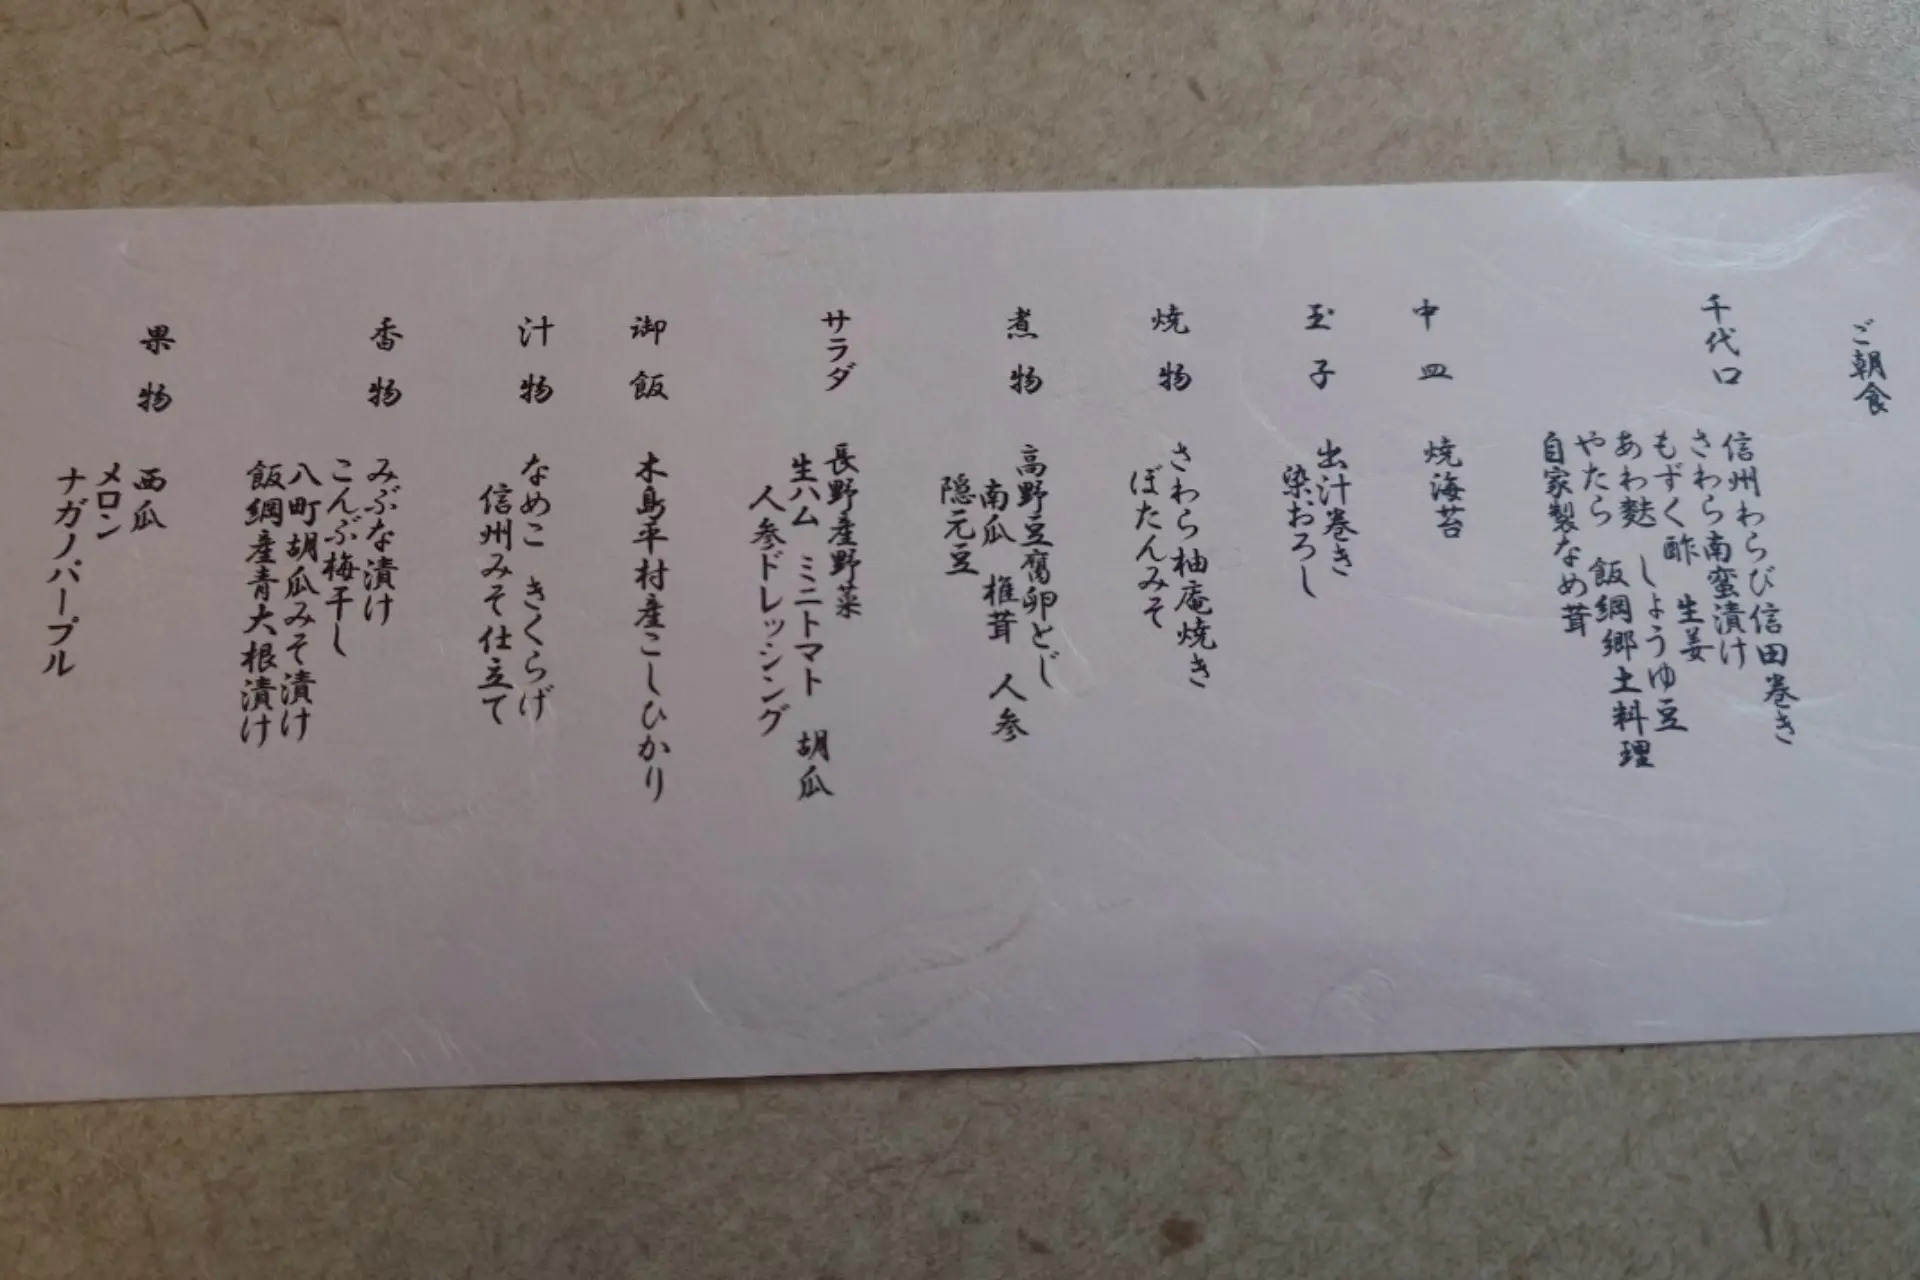 ご朝食
千代口
信州わらび信田巻き
さわら南蛮漬け
もずく酢 生姜
あわ麩 しょうゆ豆
やたら 飯綱郷土料理
自家製なめ茸
中皿
焼海苔
玉子
出汁巻き
染おろし
焼物
さわら柚庵焼き
ぼたんみそ
煮物
高野豆腐卵とじ
南瓜 椎茸 人参
隠元豆
サラダ
長野産野菜
生ハム ミニトマト 胡瓜
人参ドレッシング
御飯
木島平村産こしひかり
汁物
なめこ きくらげ
信州みそ仕立て
香物
みぶな漬け
こんぶ梅干し
八町胡瓜みそ漬け
飯綱産青大根漬け
果物
西瓜
メロン
ナガノパープル